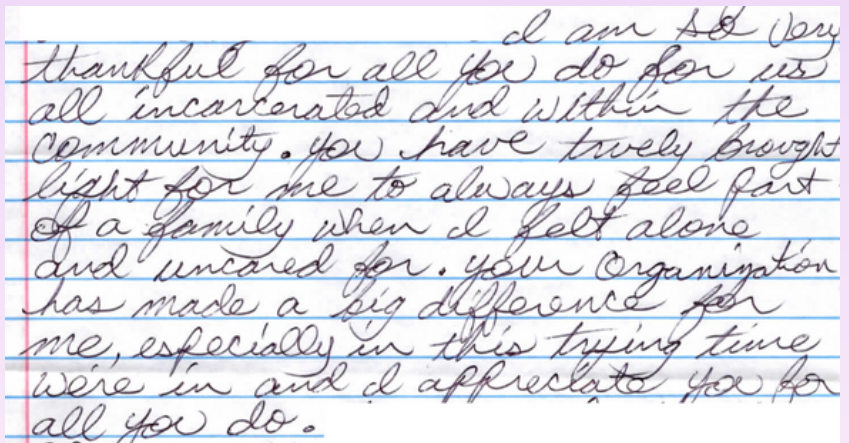 I am so very
thankful for all you do for us
all incarcerated and within the
community. you have truely brought
light for me to always feel part
of a family when I felt alone
and uncared for. your organization
has made a big difference for
me, especially in this trying time
we're in and I appreciate you for
all you do.